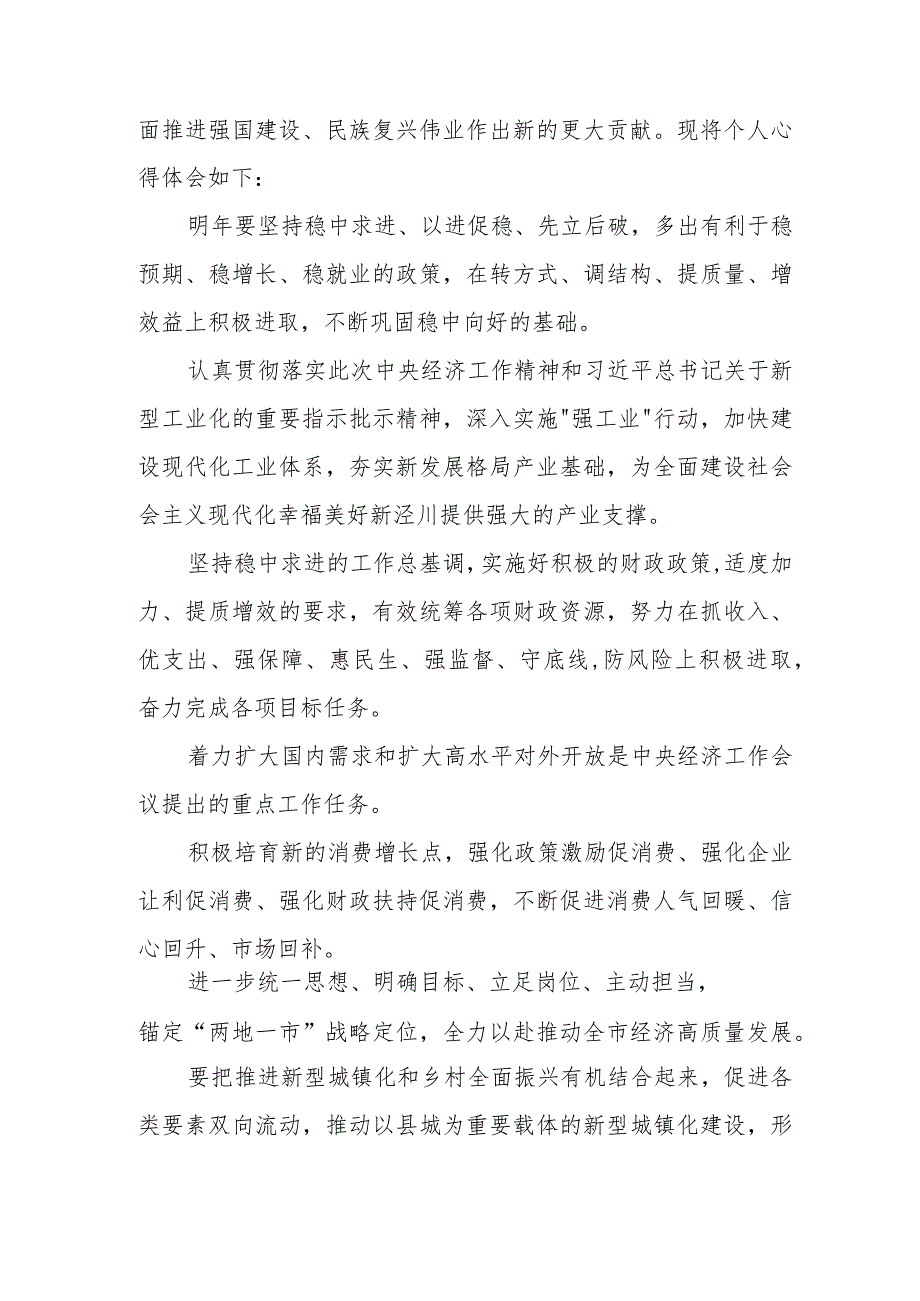 面推进强国建设、民族复兴伟业作出新的更大贡献。现将个人心
得体会如下：
明年要坚持稳中求进、以进促稳、先立后破，多出有利于稳
预期、稳增长、稳就业的政策，在转方式、调结构、提质量、增
效益上积极进取，不断巩固稳中向好的基础。
认真贯彻落实此次中央经济工作精神和习近平总书记关于新
型工业化的重要指示批示精神，深入实施"强工业"行动，加快建
设现代化工业体系，夯实新发展格局产业基础，为全面建设社会
会主义现代化幸福美好新泾川提供强大的产业支撑。
坚持稳中求进的工作总基调,实施好积极的财政政策,适度加
力、提质增效的要求，有效统筹各项财政资源，努力在抓收入、
优支出、强保障、惠民生、强监督、守底线,防风险上积极进取，
奋力完成各项目标任务。
着力扩大国内需求和扩大高水平对外开放是中央经济工作会
议提出的重点工作任务。
积极培育新的消费增长点，强化政策激励促消费、强化企业
让利促消费、强化财政扶持促消费，不断促进消费人气回暖、信
心回升、市场回补。
进一步统一思想、明确目标、立足岗位、主动担当，
锚定“两地一市”战略定位，全力以赴推动全市经济高质量发展。
要把推进新型城镇化和乡村全面振兴有机结合起来，促进各
类要素双向流动，推动以县城为重要载体的新型城镇化建设，形